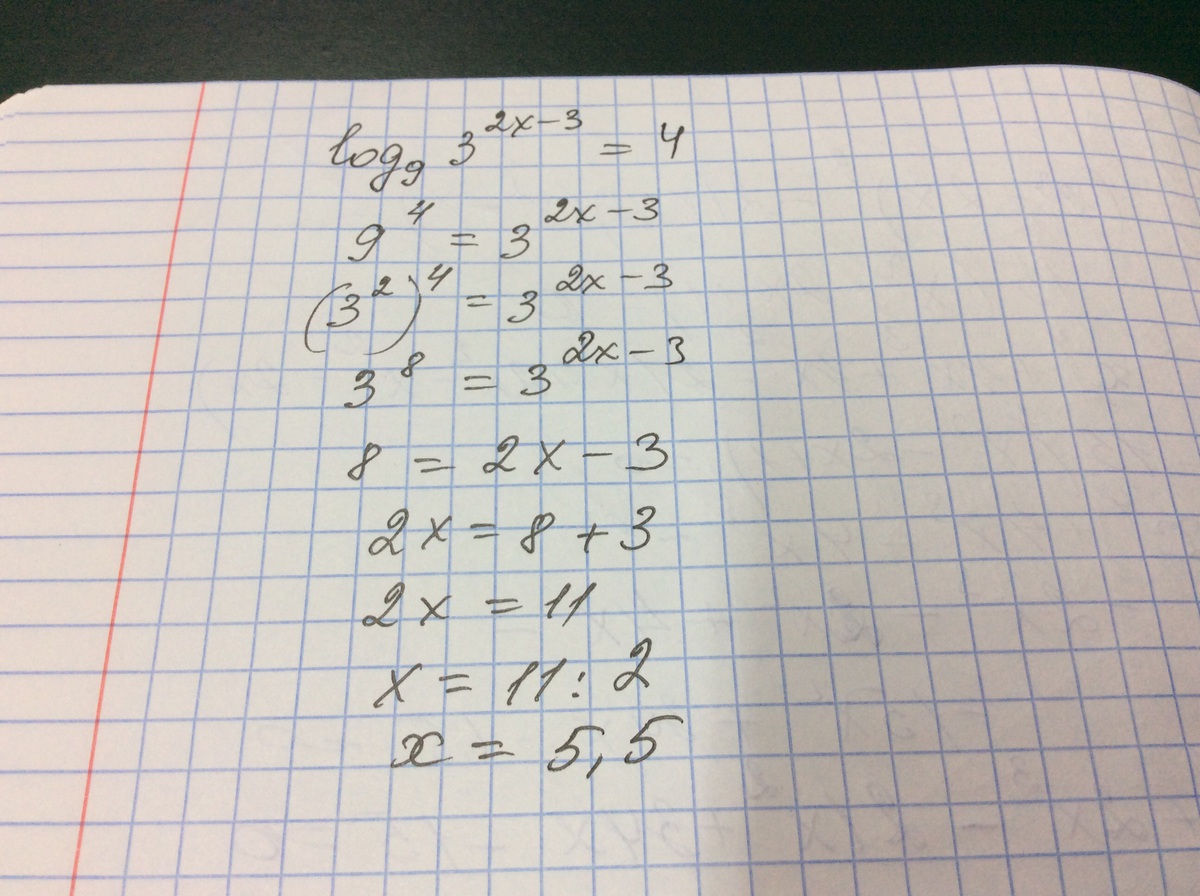 log₉ 3^(2x-3) = 4
9^4 = 3^(2x-3)
(3^2)^4 = 3^(2x-3)
3^8 = 3^(2x-3)
8 = 2x - 3
2x = 8 + 3
2x = 11
x = 11 : 2
x = 5,5